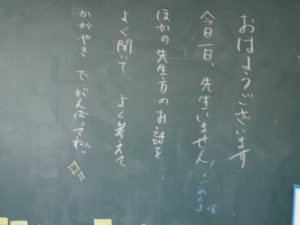 おはようございます
今日一日、先生いません。
ごめんよ
ほかの先生方のお話を
よく聞いて、よく考えて
かがやき でがんばってね!!